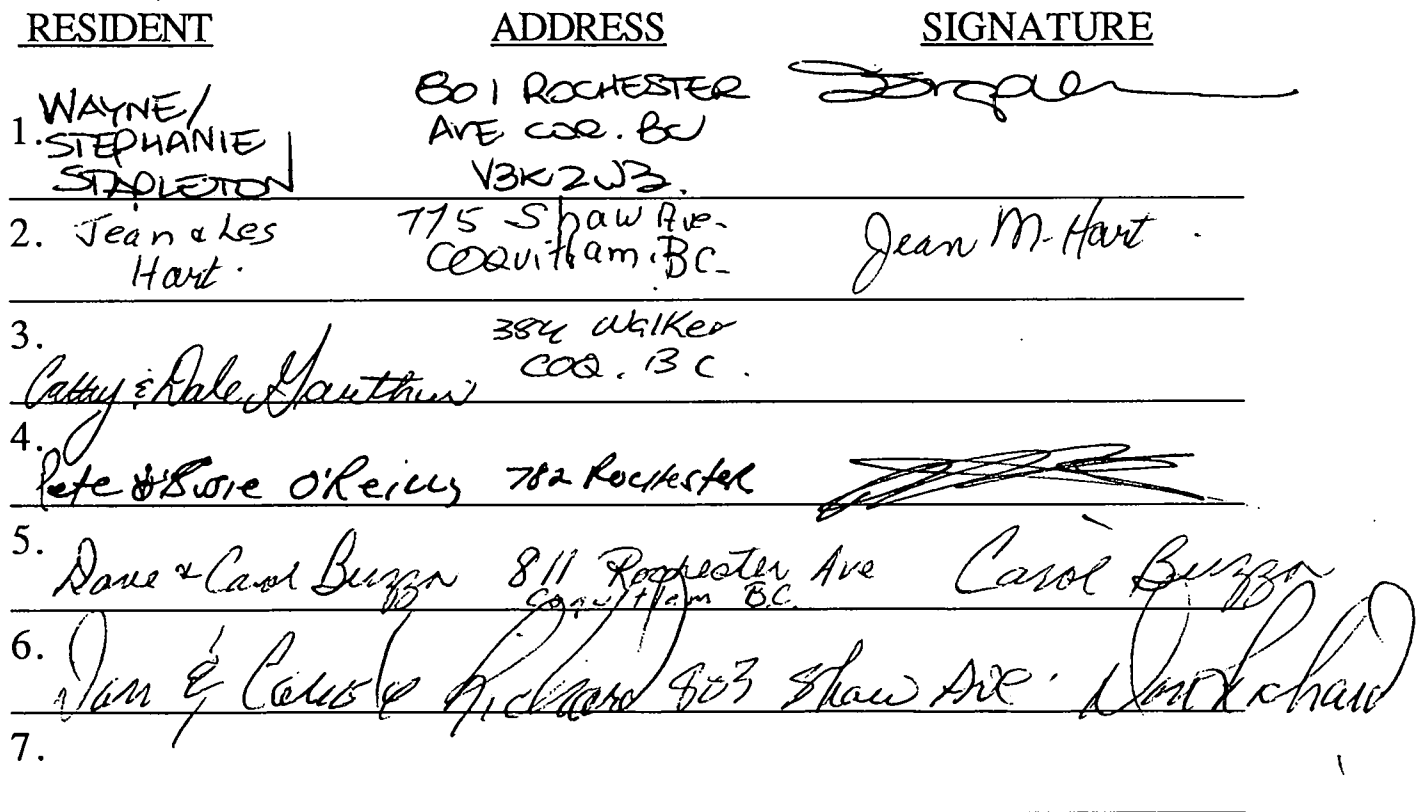 RESIDENT ADDRESS SIGNATURE
1. WAYNE/ STEPHANIE STAPLETON
801 ROCHESTER
AVE COQ. BC
V3K2W3.
2. Jean & Les
Hart.
775 Shaw Ave.
COQuitlam. BC.
Jean M. Hart.
3.
Cathy & Dale
384 Walker
COQ. BC.
4.
Pete & Susie O'Reilly 782 Rochester
5.
Dave & Carol Buzza 811 Rochester Ave Carol Buzza
Coquitlam B.C.
6.
& Richard 803 Shaw Ave. Richard
7.